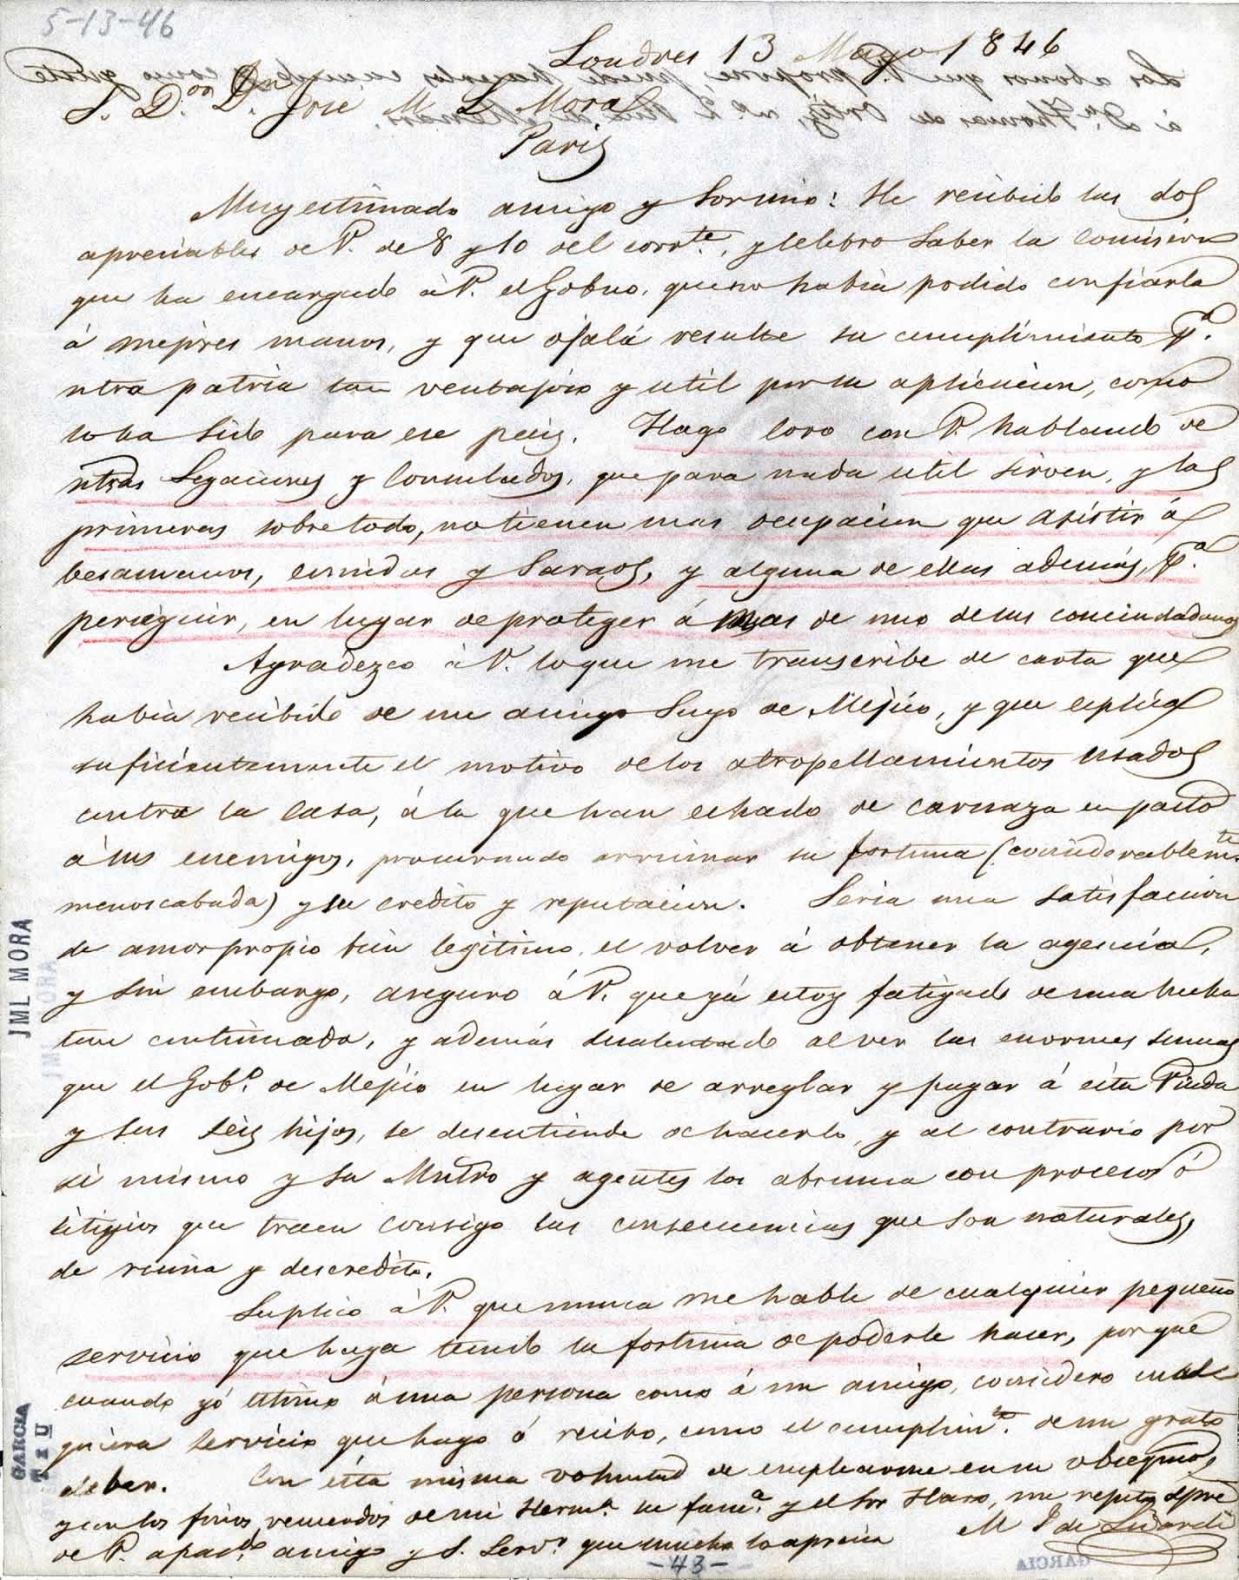 5-13-46
Londres 13 Mayo 1846
S. D.or D. José M L Mora
Paris
Muy estimado amigo y Sor mio: He recibido las dos
apreciables de V. de 8 y 10 del corrte., y celebro saber la comision
que ha encargado á V. el Gobno. que no habia podido confiarla
á mejores manos, y que ojalá resulte su cumplimiento pa.
ntra patria tan ventajoso y util por su aplicacion, como
lo ha sido para ese pais. Hago coro con V. hablando de
ntras Legaciones y Consulados, que para nada util sirven, y las
primeras sobre todo, no tienen mas ocupacion que asistir á
besamanos, comidas y Saraos, y alguna de ellas además, pa.
perseguir, en lugar de proteger á mas de uno de sus conciudadanos
Agradezco á V. lo que me transcribe de carta que
habia recibido de un amigo Suyo de Méjico, y que esplica
suficientemente el motivo de los atropellamientos usados
contra la casa, á la que han echado de carnaza en pasto
á sus enemigos, procurando arruinar su fortuna (considerablemte.
menoscabada) y su credito y reputacion. Seria una satisfaccion
de amor propio bien legitimo, el volver á obtener la agencia,
y sin embargo, aseguro á V. que yá estoy fatigado de una lucha
tan continuada, y además desalentado al ver las enormes sumas
que el Gobo. de Mejico en lugar de arreglar y pagar á esta Viuda
y sus seis hijos, se desentiende de hacerlo, y al contrario por
sí mismo y su Mntro y agentes los abruma con procesos ó
litigios que traen consigo las consecuencias que son naturales,
de ruina y descredito.
Suplico á V. que nunca me hable de cualquier pequeño
servicio que haya tenido la fortuna de poderle hacer, porque
cuando yó estimo á una persona como á un amigo, considero cual
quiera servicio que hago ó recibo, como el cumplimto. de un grato
deber. Con esta misma voluntad de emplearme en su obsequio,
y con los finos recuerdos de mi Herma. su fama. y el Sor Haro, me repito spre
de V. apasdo. amigo y S. Servr. que mucho lo aprecia M J de Lizardi
-43-
JML MORA
GARCIA
GARCIA